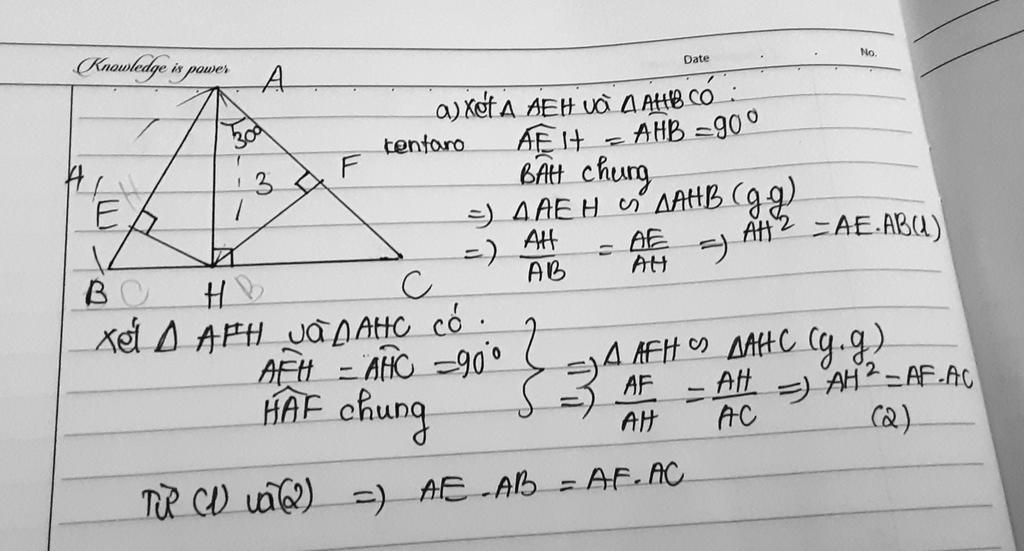 Knowledge is power
Date
No.
A
30°
3
F
4
E
H
B
C
H
B
C
a) Xét Δ AEH và Δ AHB có :
kentaro
AÊH = AĤB = 90°
BÂH chung
=> Δ AEH ∽ ΔAHB (g.g)
=> AH/AB = AE/AH => AH² = AE.AB (1)
Xét Δ AFH và ΔAHC có .
AF̂H = AĤC = 90°
HÂF chung
} => Δ AFH ∽ ΔAHC (g.g)
=> AF/AH = AH/AC => AH² = AF.AC
(2)
Từ (1) và (2) => AE . AB = AF. AC